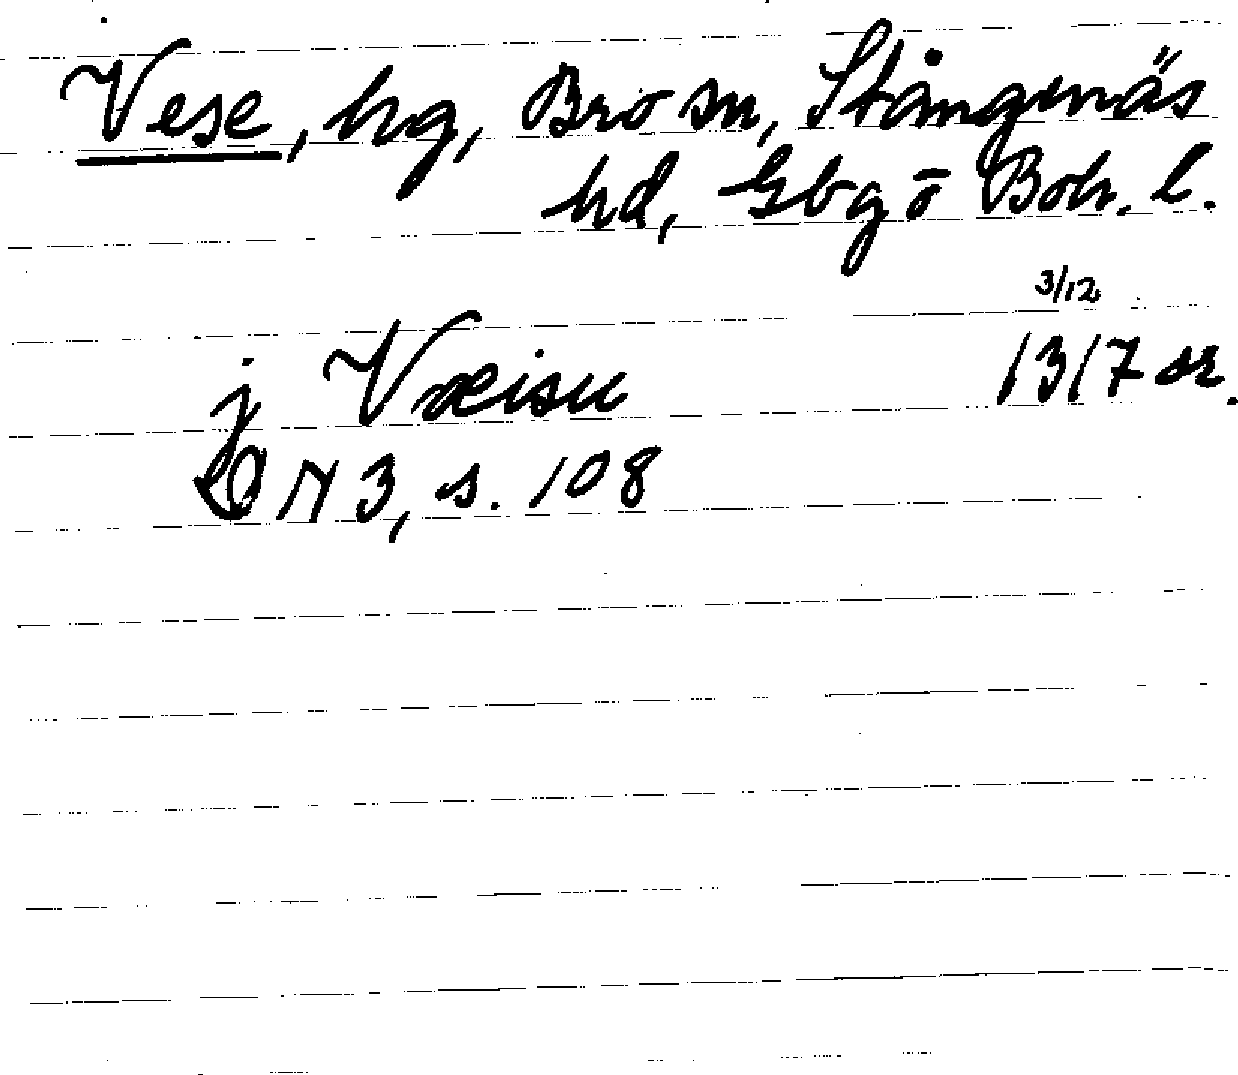 Vese, hg, Bro sn, Stångenäs
hd, Gbg o Boh. l.
3/12
j Væisu 1317 sr.
DN 3, s. 108